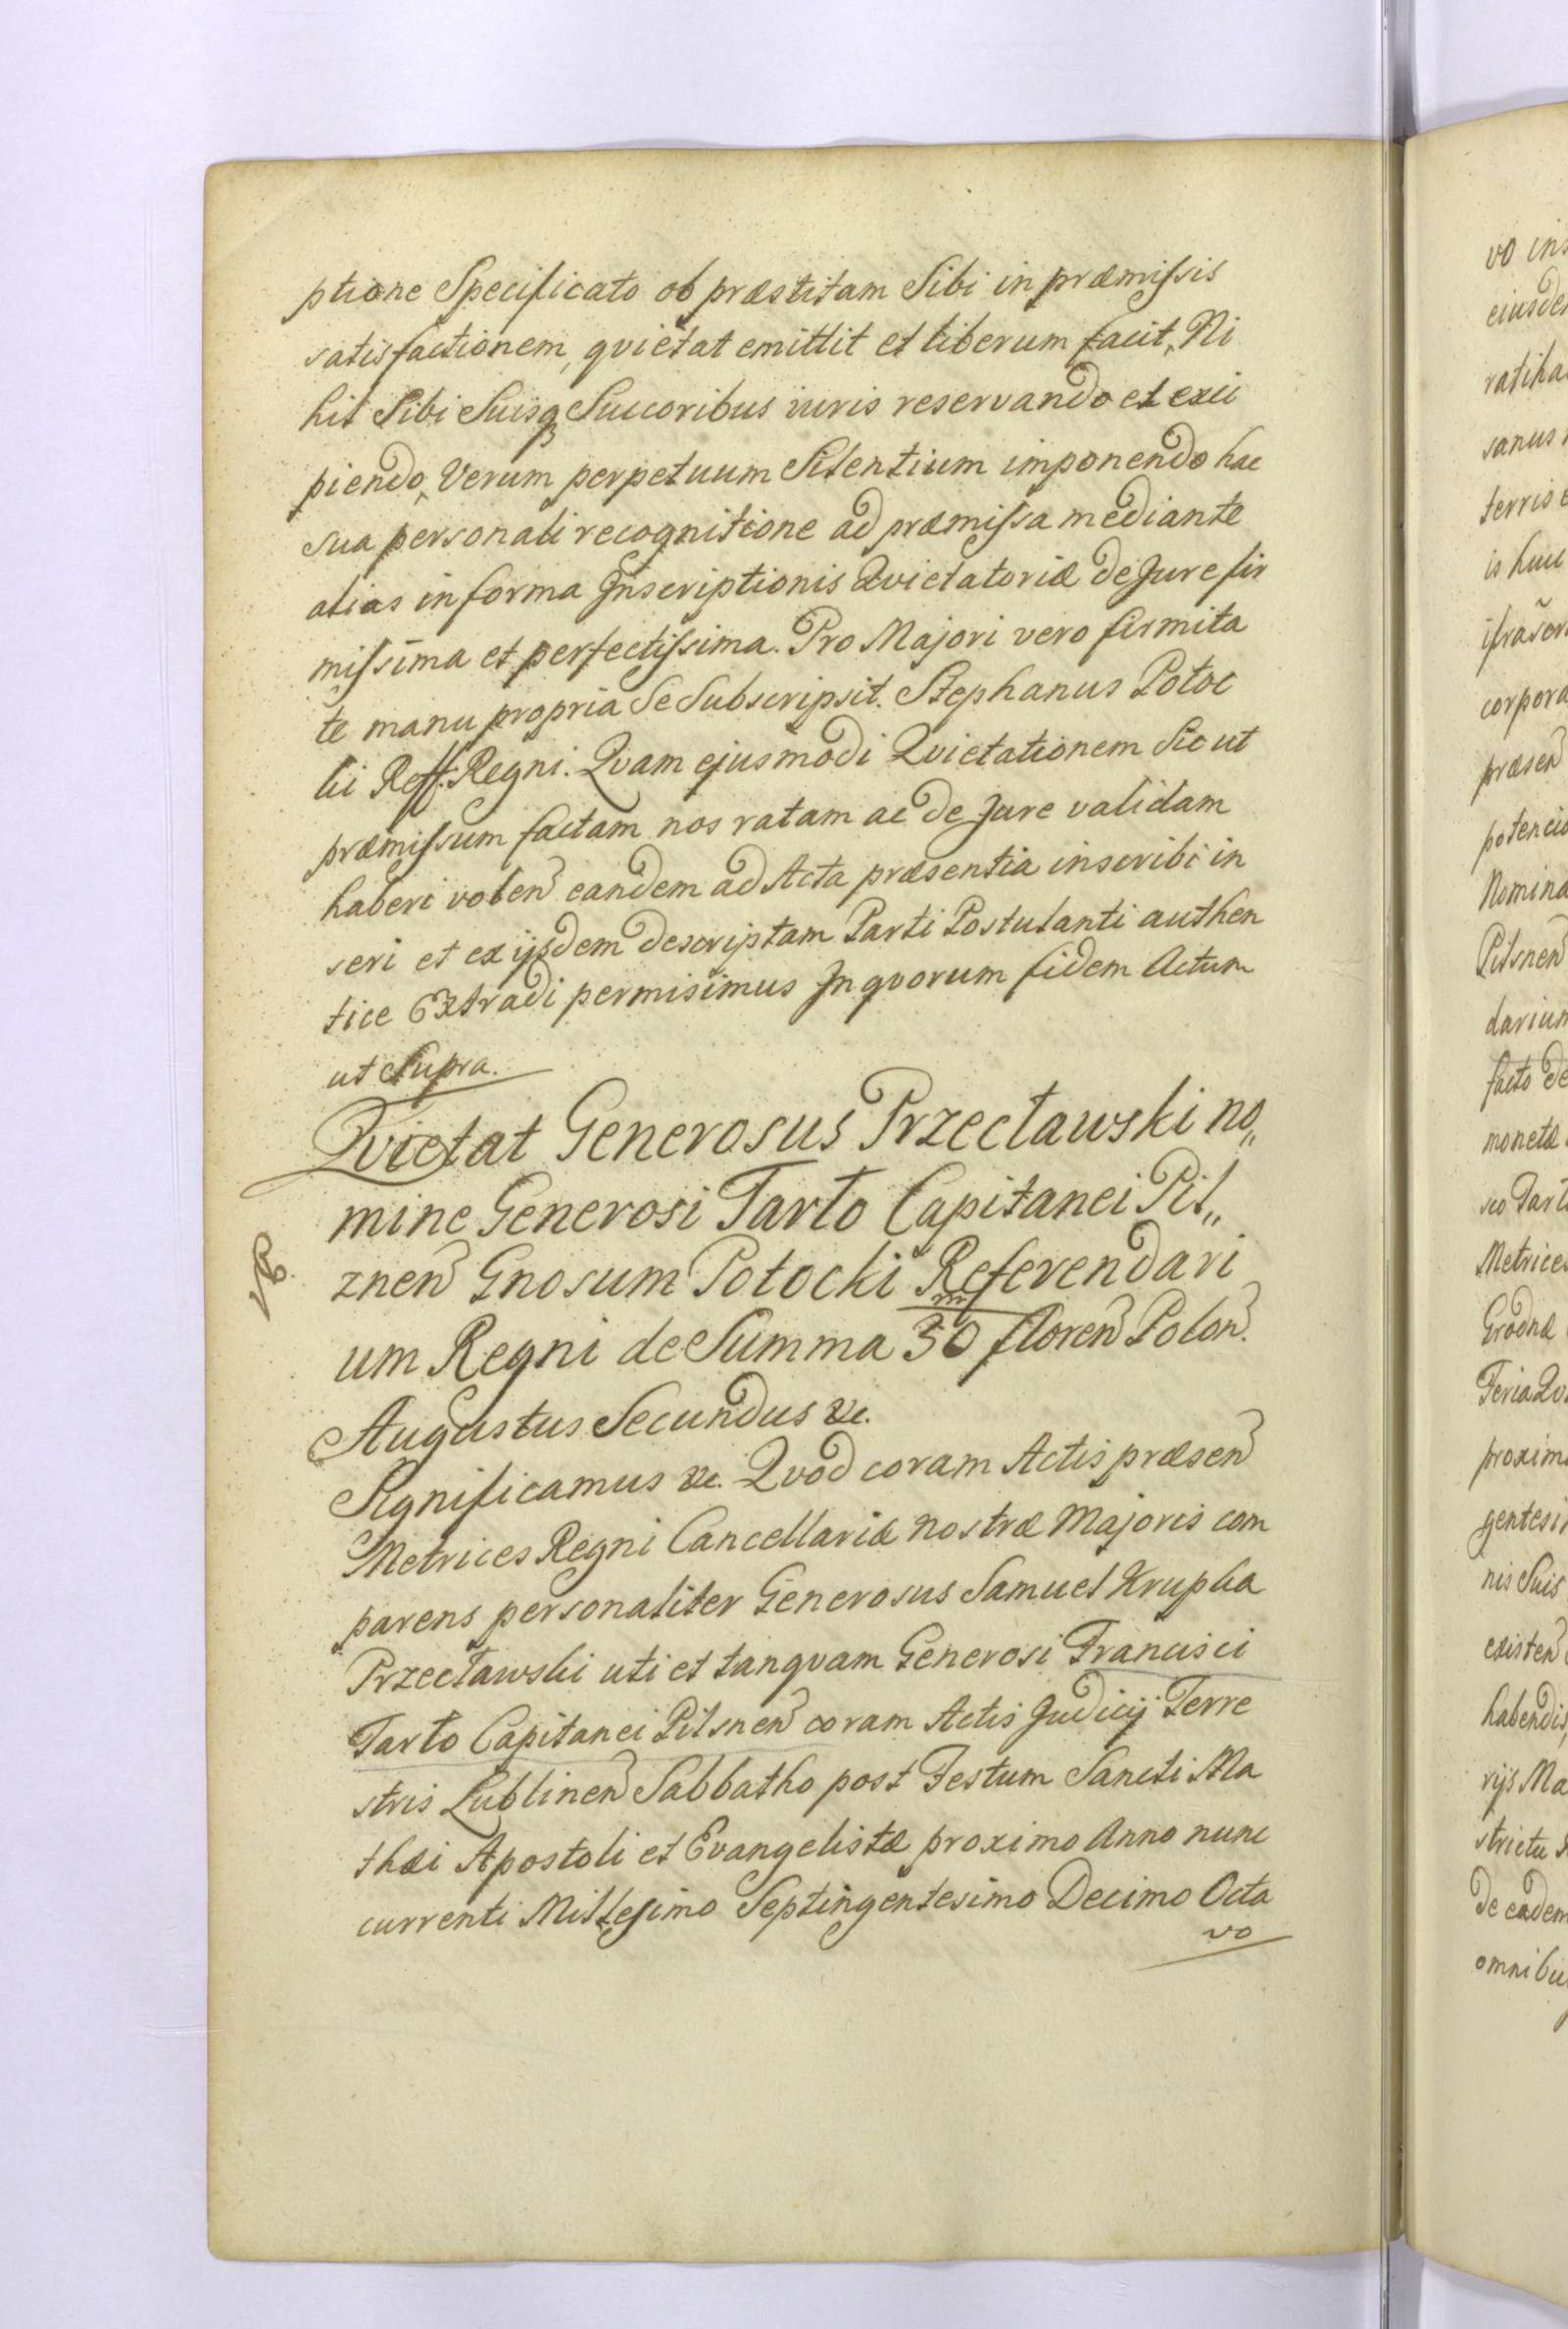 ptione Specificato ob præstitam Sibi in præmissis
satisfactionem, qvietat emittit et liberum facit, Ni
hil Sibi Suisq Succoribus iuris reservando et exci
piendo, Verum perpetuum Silentium imponendo hac
sua personali recognitione ad præmissa mediante
alias in forma Inscriptionis Qvietatoriæ de Jure fir
missima et perfectissima. Pro Majori vero firmita
te manu propria Se Subscripsit. Stephanus Potoc
ki Reff: Regni. Qvam ejusmodi Qvietationem Sic ut
præmissum factam nos ratam ac de Jure validam
haberi volen eandem ad Acta præsentia inscribi in
seri et ex ijsdem descriptam Parti Postulanti authen
tice Extradi permisimus In qvorum fidem Actum
ut Supra.
Qvietat Generosus Przecławski no„
mine Generosi Tarło Capitanei Pil„
znen Gnosum Potocki Referendari
um Regni de Summa 30 floren Polon.
Augustus Secundus &c.
Significamus &c. Qvod coram Actis præsen
Metrices Regni Cancellariæ nostræ Majoris com
parens personaliter Generosus Samuel Krupka
Przecławski uti et tanqvam Generosi Francisci
Tarło Capitanei Pilsnen coram Actis Judicij Terre
stris Lublinen Sabbatho post Festum Sancti Ma
thæi Apostoli et Evangelistæ proximo Anno nunc
currenti Millesimo Septingentesimo Decimo Octa
vo
vo ins
eiusde
ratiha
sanus
terris
is huu
corpora
præsen
potencio
Nomina
Pilsnen
darium
facto de
monetæ
sco Tarł
Metrices
Grodnæ
Feria Qv
proxim
gentesi
nis Suis
existen
habendis
rijs Ma
strictu
de eadem
omnibu